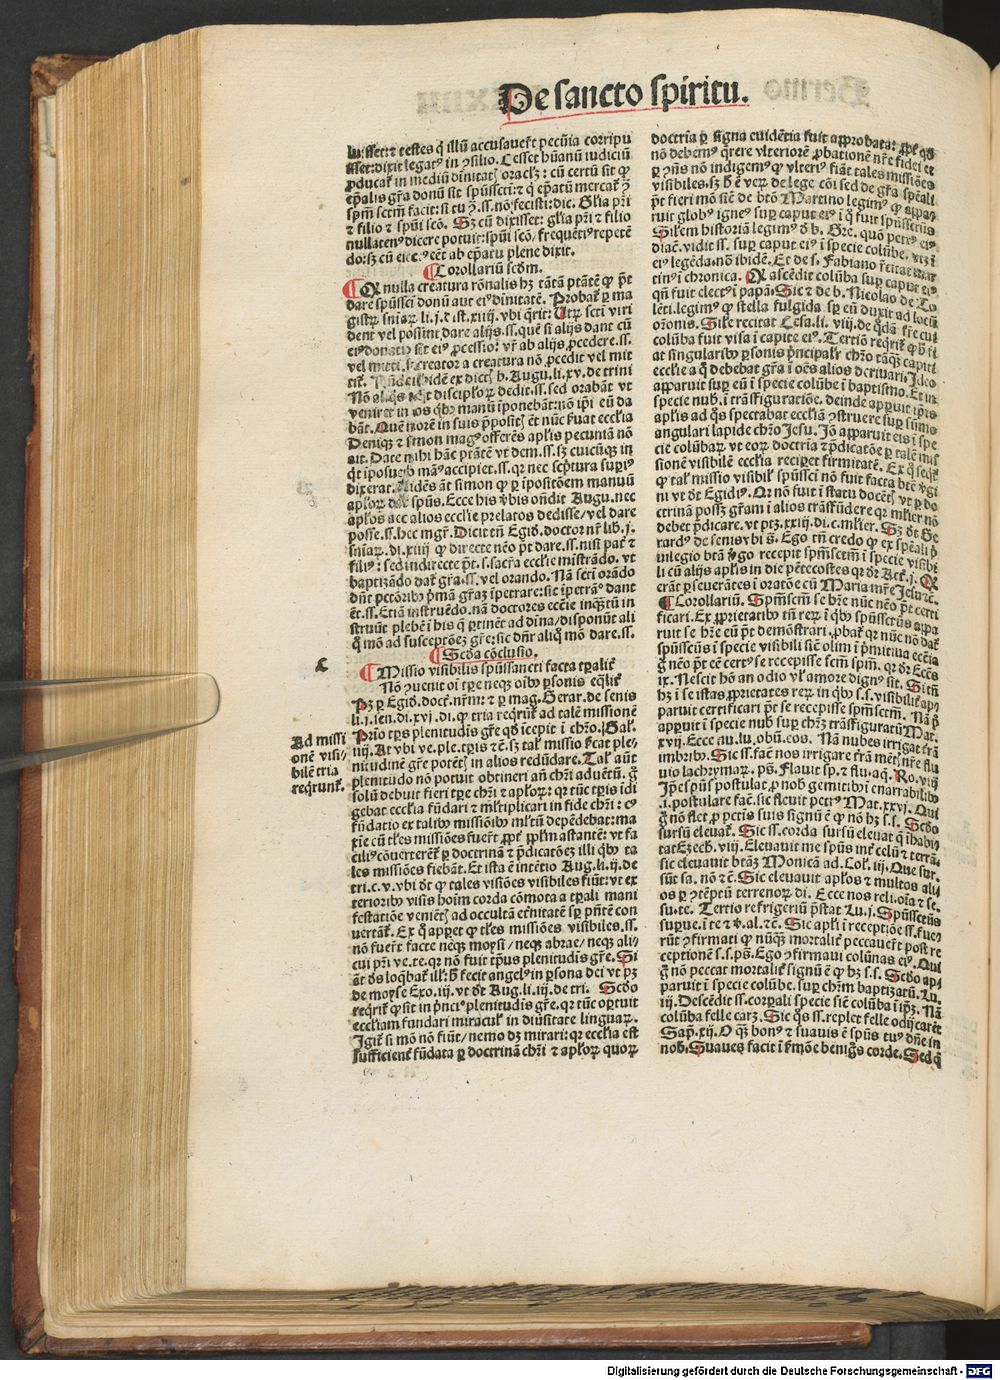 De sancto spiritu.
luisset: et testes q̇ illū accusauer̄t pecūia corripu
isset: dixit legatꝰ in ꝯsilio. Cesset hūanū iudiciū
ꝓducat̄ in mediū diuinitatꝭ oraclꝫ: cū certū sit ꝙ
ep̄alis gr̄a donū sit sp̄ussc̄ti: ⁊ q̇ ep̄atū mercat̄ ꝯ
sp̄m sc̄tm̄ facit: si tu ꝯ .ss. nō fecisti: dic. Gl̄ia pr̄i
⁊ filio ⁊ sp̄ui sc̄o. Sꝫ cū dixisset: gl̄ia pr̄i ⁊ filio
nullatenꝰ dicere potuit: sp̄ui sc̄o/ frequēti⁹ repetē
do: sꝫ cū eiectꝰ eēt ab ep̄atu plene dixit.
¶ Corollariū scd̄m.
¶ Qꝛ nulla creatura rōnalis hꝫ tātā ptātē ꝙ p̄t
dare sp̄ussc̄i donū aut eiꝰ diuinitatē. Probat̄ ꝑ ma
gistꝝ sniaꝝ li. j. dist. xiiij. vbi q̄rit: Utꝝ sc̄ti viri
dent vel possint dare alijs .ss. quē si alijs dant cū
vel mitti. creator a creatura nō ꝓcedit vel mit
Nō aliq̇s discipl̓oꝝ dedit .ss. sed orabāt vt
veniret in eos q̇bꝰ manū īponebāt: nō ip̄i eū da
bāt. Quē morē in suis p̄positꝭ et nūc ẜuat ecclīa
Deniqꝫ ⁊ simon magꝰ offerēs apl̓is pecuniā nō
ait. Date mihi hāc ptātē vt dem .ss. sꝫ cuicūqꝫ in
qͥt īposuero manꝰ accipiet .ss. qꝛ nec sc̄ptura supiꝰ
dixerat. Uidēs āt simon ꝙ ꝑ īpositōem manuū
apl̓oꝝ daret̄ sp̄us. Ecce his v̓bis oñdit Augu. nec
apl̓os nec alios ecclīe prelatos dedisse/ vel dare
posse .ss. hec mgr̄. Dicit tn̄ Egid̓. doctor nr̄ lib. j.
sniaꝝ. di. xiiij ꝙ directe nēo p̄t dare .ss. nisi pat̄ ⁊
filiꝰ: sed indirecte p̄t .s. sacr̄a ecclīe mīstrādo. vt
baptizādo dat̄ gr̄a .ss. vel orando. Nā sc̄ti orādo
dn̄t pctōribꝰ p̄mā gr̄aꝫ īpetrare: sic īpetrāꝰ dant
eēt .ss. Etiā instruēdo. nā doctores ecclīe inqͣtū in
struūt plebē ī his q̄ ꝑtinēt ad diuina/ disponūt ali
q̊ mō ad susceptōeꝫ gr̄e: sic dn̄r aliq̊ mō dare .ss.
¶ Scd̄a cōclusio.
C
¶ Missio visibilis sp̄ussancti facta tꝑalit̄
Nō ꝯuenit oī tꝑe neqꝫ oībꝰ ꝑsonis eq̄lit̄
Ad missi
onē visi
bilē tria
reqrunt̄.
li. j. sen. di. xvj. di. ꝙ tria reqrūt̄ ad talē missionē
Prīo tꝑs plenitudis gr̄e qd̓ īcepit ī chr̄o. Gal̓.
iiij. At vbi ve. ple. tꝑis ⁊c̄. sꝫ tal̓ missio ſcat ple
nitudinē gr̄e potētꝭ in alios redūdare. Tal̓ aūt
plenitudo nō potuit obtineri añ chr̄i aduētū. ḡ
solū debuit fieri tꝑe chr̄i ⁊ apl̓oꝝ: qꝛ tūc tꝑis īdi
gebat ecclīa fūdari ⁊ ml̓tiplicari in fide chr̄i: cꝰ
fūdatio ex talibꝰ missiōibꝰ ml̓tū depēdebat: ma
xie cū tl̓es missiōes fuer̄t ꝓpt̄ ppl̓m astantē: vt fa
ciliꝰ cōuerterēt̄ ꝑ doctrinā ⁊ p̄dicatōeꝫ illi q̇bꝰ ta
les missiōes fiebāt. Et ista ē intētio Aug. li. ij. de
tri. c. v. vbi d̓t ꝙ tales visiōes visibiles fiūt: vt ex
terioribꝰ visis hoīm corda cōmota a tꝑali mani
festatiōe venietꝭ ad occultā et̄nitatē sp̄ p̄ntē con
uertāt̄. Ex q̊ apꝫet ꝙ tl̓es missiōes visibiles .ss.
nō fuer̄t facte neqꝫ moysi/ neqꝫ abrae/ neqꝫ ali/
cui pr̄i ve. te. qꝛ nō fuit tp̄us plenitudis gr̄e. Si
āt dn̄s loq̄bat̄ ill̓: h̓ fecit angelꝰ in ꝑsona dei vt pꝫ
de moyse Exo. iij. vt d̓t Aug. li. iij. de tri. Scd̓o
reqrit̄ ꝙ sit in p̄ncipiꝰ plenitudis gr̄e. qꝛ tūc oꝑtuit
eccliam fundari miracul̓ in diūsitate linguaꝝ.
Igit̄ si mō nō fiūt/ nemo dꝫ mirari: qꝛ ecclīa est
sufficient̄ fūdata ꝑ doctrinā chr̄i ⁊ apl̓oꝝ quoꝝ
doctrīa ꝑ signa euidētia fuit approbata: ꝓpt̄ qd̓
nō debemꝰ q̄rere vlteriorē ꝓbationē nr̄e fidei et
ꝑ ꝯn̄s nō indigemꝰ ꝙ vlteriꝰ fiāt tales missiōes
visibiles. sꝫ h̓ ē veꝝ de lege cōi sed de gr̄a sp̄eāli
p̄t fieri mō sic̄ de btō Martino legimꝰ ꝙ appa
ruit globꝰ igneꝰ suꝑ caput eiꝰ ī q̊ fuit sp̄ussctūs
Silem historiā legimꝰ d̓ b. Gre. quō petrꝰ eiꝰ
diac̄. vidit ss. suꝑ caput eiꝰ ī specie colūbe. vt pꝫ ī
eiꝰ legēda. nō ibidē. Et de s. Fabiano r̄citat mar
tinꝰ ī chronica. Qꝛ ascēdit colūba suꝑ caput eiꝰ
qn̄ fuit electꝰ ī papā. Sic ⁊ de b. Nicolao de To
lēti. legimꝰ ꝙ stella fulgida sꝑ eū duxit ad locū
or̄onis. Sil̓e recitat Cesa. li. viij. de q̊dā fr̄e cui
colūba fuit visa ī capite eiꝰ. Tertiō reqrit̄ ꝙ h̓ fi
at singularibꝰ ꝑsonis p̄ncipalit̄ chr̄o tāqͣꝫ capiti
ecclīe a q̊ debebat gr̄a ī oēs alios deriuari. Ideo
apparuit suꝑ eū ī specie colūbe ī baptismo. Et in
specie nub. ī trāsfiguratiōe. deinde apꝑuit ip̄is
apl̓is ad q̊s spectabat ecclīaꝫ ꝯstruere suꝑ sūmo
angulari lapide chr̄o Jesu. Jō apparuit eis ī spe
cie colūbaꝝ vt eoꝝ doctrīa ⁊ p̄dicatōe ꝑ talē mis
sionē visibilē ecclīa recipet firmitatē. Ex q̊ seqt̄
ꝙ tal̓ missio visibil̓ sp̄ussc̄i nō fuit facta btē v̓gi
ni vt d̓t Egidiꝰ. Qꝛ nō fuit ī statu docētꝭ vt ꝑ do
ctrinā possꝫ gr̄am ī alios trāsfūdere qꝛ ml̓ier nō
debet p̄dicare. vt ptꝫ. xxiij. di. c. ml̓ier. Sꝫ d̓t Ge
rardꝰ de senis vbi s̄. Ego tn̄ credo ꝙ ex sp̄eāli p̓
uilegio btā v̓go recepit sp̄m sctm̄ ī specie visibi
li cū alijs apl̓is in die pētecostes qꝛ d̓r Act̄. j. Qꝛ
erāt ꝑseuerātes ī oratōe cū Maria mr̄e Jesu ⁊c̄.
¶ Corollariū. Sp̄m sctm̄ se hr̄e nūc nēo p̄t certi
ficari. Ex ꝓprietatibꝰ tn̄ reꝝ ī q̇bꝰ sp̄ussctūs appa
ruit se hr̄e eū p̄t demōstrari. ꝓbat̄ qꝛ nūc nō dat̄
sp̄ussctūs ī specie visibili sic̄ olim ī p̓mitiua ecclīa
ḡ nēo p̄t eē certꝰ se recepisse sctm̄ sp̄m. qꝛ d̓r Eccs
ix. Nescit hō an odio vl̓ amore dignꝰ sit. Si tn̄
hꝫ ī se istas ꝓprietates reꝝ in q̇bꝰ s. s. visibilit̄ ap
paruit certificari p̄t se recepisse sp̄m sctm̄. Nā p̊
apꝑuit ī specie nub suꝑ chr̄ꝫ trāsfiguratū Mat.
xvij. Ecce nu. lu. obū. eos. Nā nubes irrigat tr̄ā
imbribꝰ. Sic ss. fac nos irrigare tr̄ā mētꝭ nr̄e flu
uio lachrymaꝝ. ps. Flauit sp. ⁊ flu. aq̄. Ro. viij
Ip̄e sp̄us postulat ꝓ nob̓ gemitibꝰ ī enarrabilibꝰ
.i. postulare fac̄. sic fleuit petrꝰ Mat. xxvj. Qui
ḡ nō flet ꝓ pctīs suis signū ē ꝙ nō hꝫ s. s. Scd̓o
sursū eleuat̄. Sic ss. corda sursū eleuat q̄ īhabi
tat Ezech. viij. Eleuauit me sp̄us int̄ celū ⁊ terrā.
sic eleuauit btāꝫ Monicā ad. Col̓. iij. Que sur.
sūt sa. nō ⁊c̄. Sic eleuauit apl̓os ⁊ multos ali
os ꝑ ꝯtēptū terrenoꝝ di. Ecce nos reli. oīa ⁊ se.
su. te. Tertio refrigeriū p̄stat Lu. j. Sp̄ussctūs
suꝑue. ī te ⁊ v̓. al. ⁊c̄. Sic apl̓i ī receptiōe ss. fue
rūt ꝯfirmati ꝙ nūqͣꝫ mortalit̄ peccauer̄t post re
ceptionē s. s. ps. Ego ꝯfirmaui colūnas eiꝰ. Qui
ḡ nō peccat mortalit̄ signū ē ꝙ hꝫ s. s. Scd̓o ap
paruit ī specie colūbe. suꝑ chr̄m baptizatū. Lu.
iij. Descēdit ss. corꝑali specie sic̄ colūba ī ip̄ꝫ. Nā
colūba felle carꝫ. Sic q̊s ss. replet felle odij carēt
Sap̄. xij. O qͣꝫ bonꝰ ⁊ suauis ē sp̄us tuꝰ dn̄e in
nob̓. Suaues facit ī ẜmōe benignos corde. Sed q̄
Digitalisierung gefördert durch die Deutsche Forschungsgemeinschaft - DFG